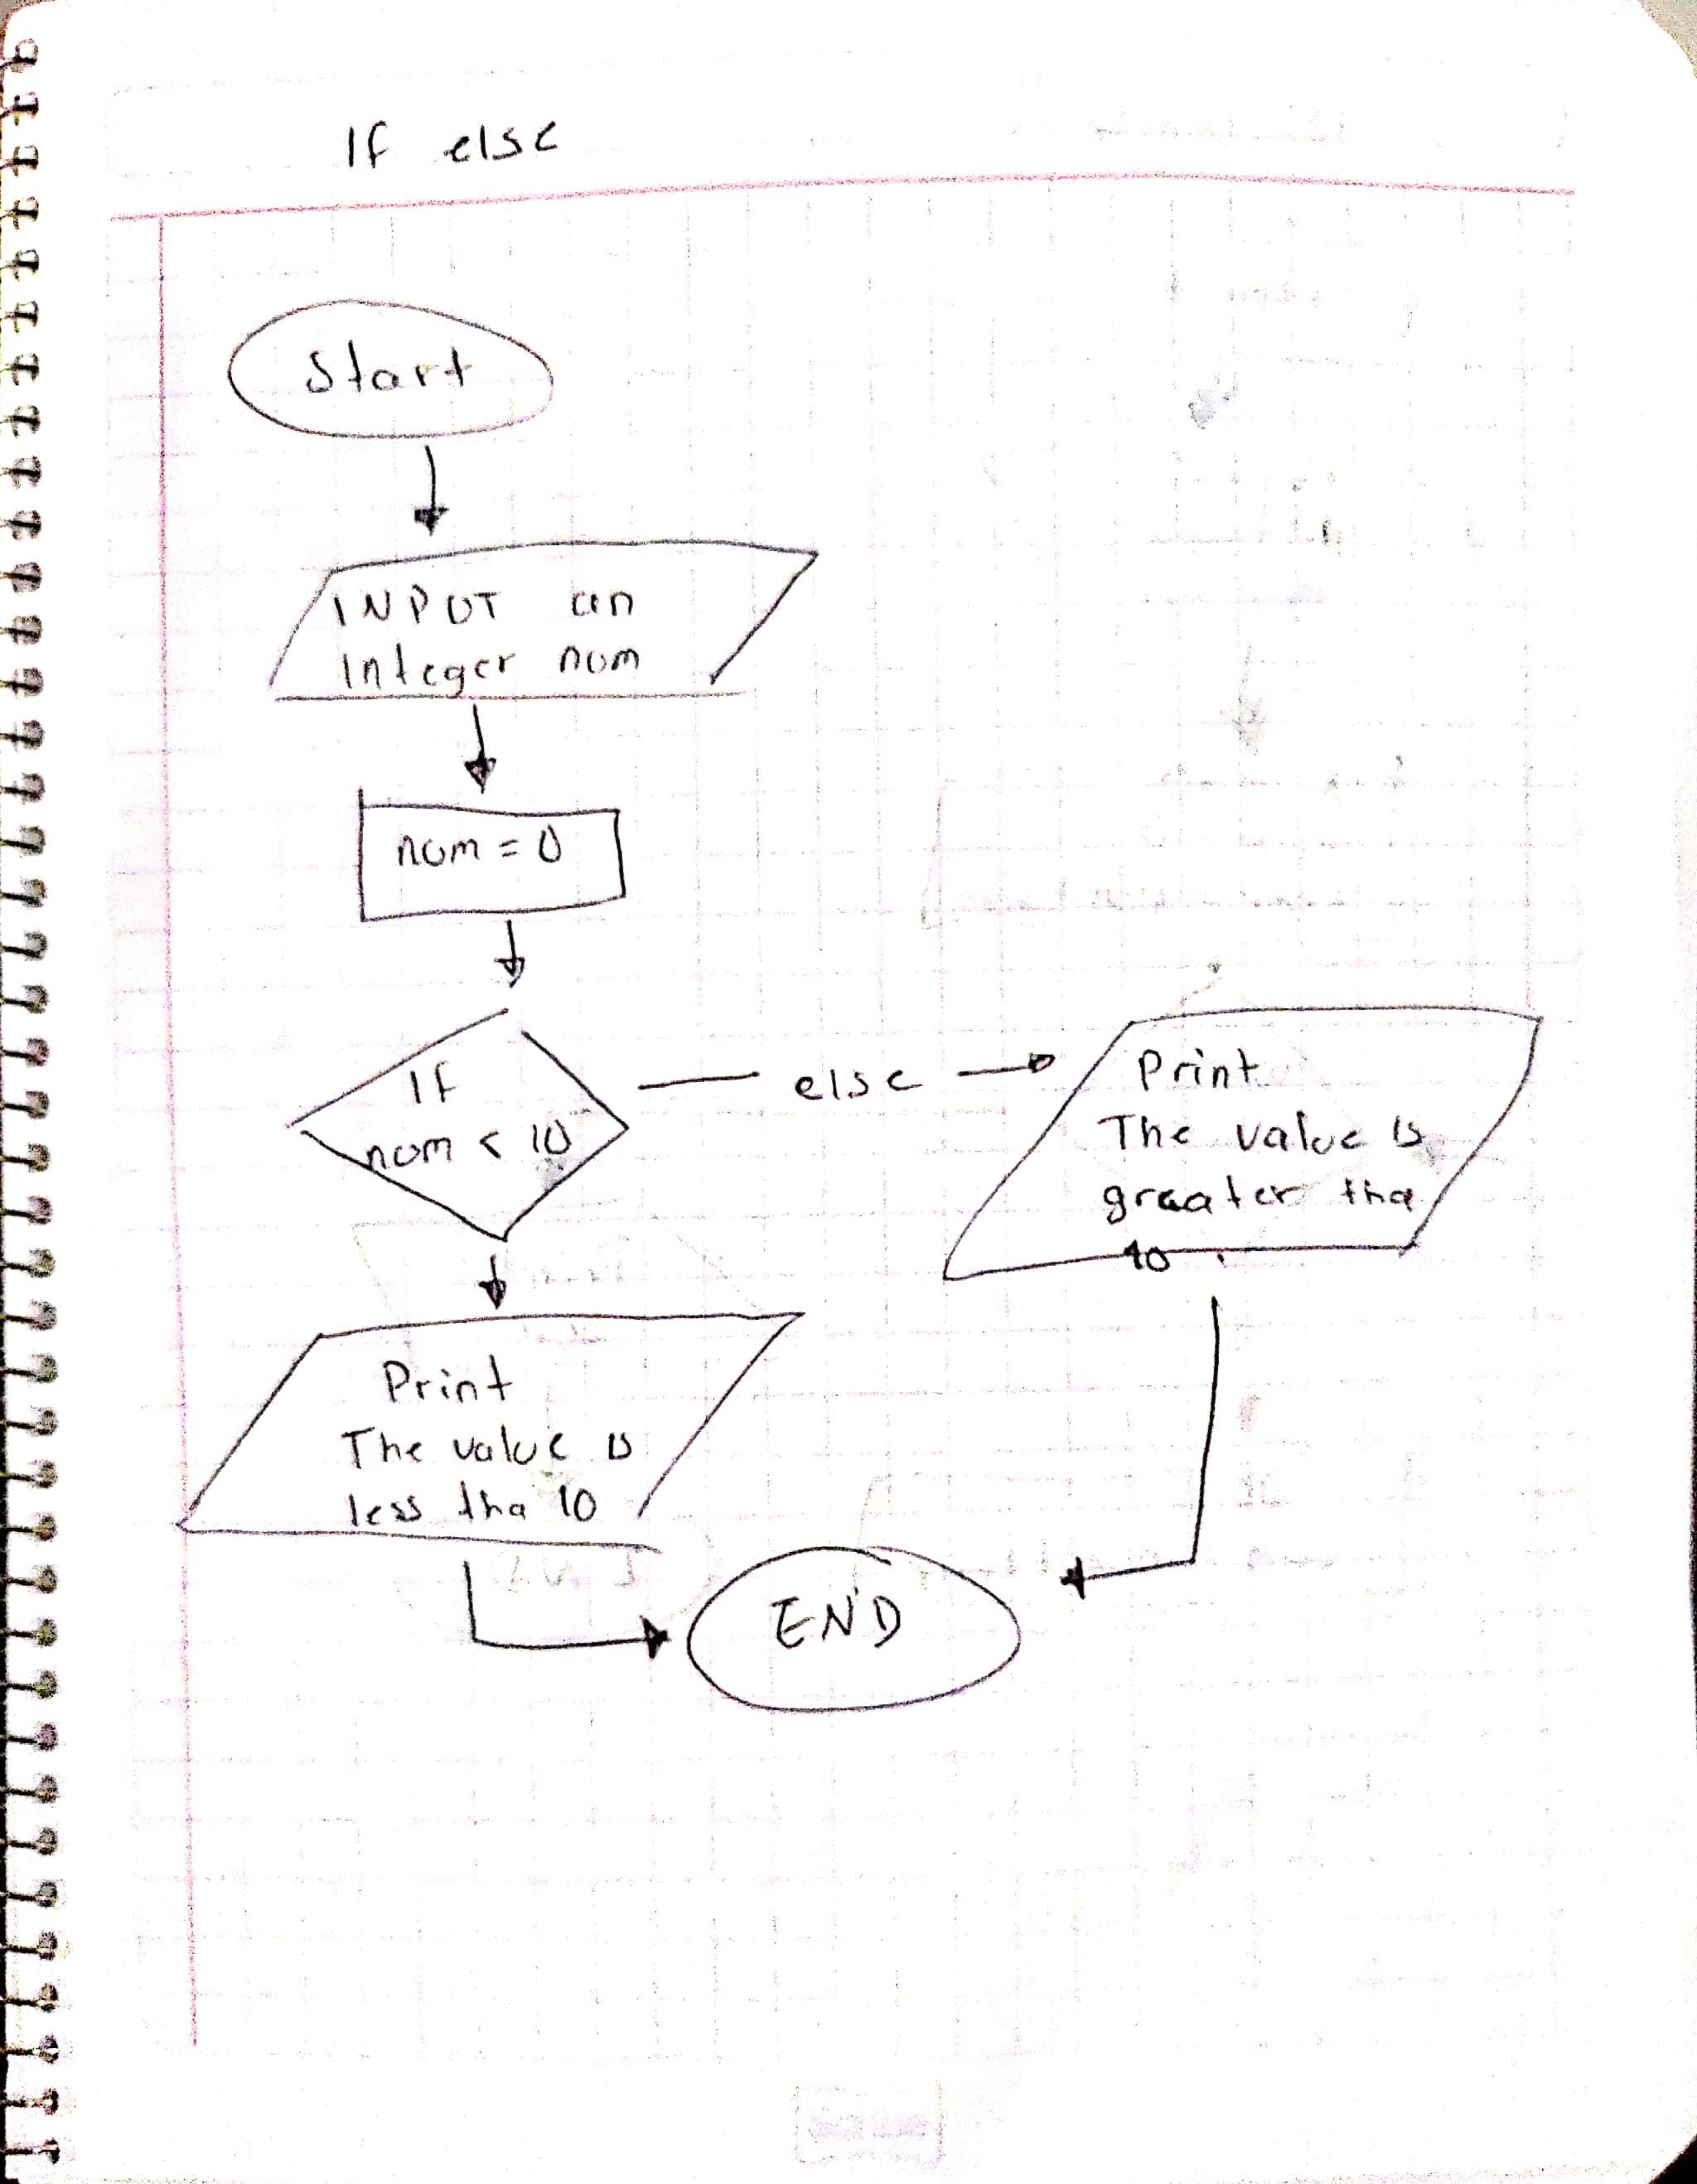 If else
Start
INPUT an
Integer num
num = 0
If
num < 10
else
Print
The value is
greater tha
10 .
Print
The value is
less tha 10
END